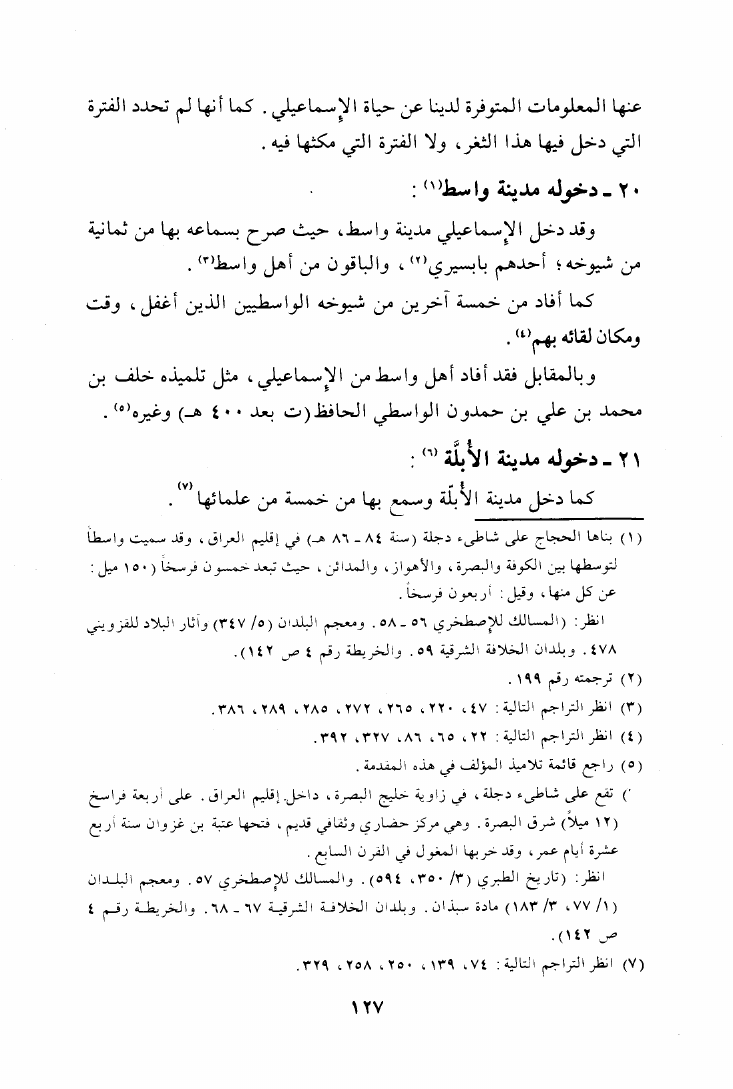 عنها المعلومات المتوفرة لدينا عن حياة الإسماعيلي. كما أنها لم تحدد الفترة
التي دخل فيها هذا الثغر، ولا الفترة التي مكثها فيه.
٢٠ ـ دخوله مدينة واسط(١) :
وقد دخل الإسماعيلي مدينة واسط، حيث صرح بسماعه بها من ثمانية
من شيوخه؛ أحدهم بابسيري(٢)، والباقون من أهل واسط(٣).
كما أفاد من خمسة آخرين من شيوخه الواسطيين الذين أغفل، وقت
ومكان لقائه بهم(٤).
وبالمقابل فقد أفاد أهل واسط من الإسماعيلي، مثل تلميذه خلف بن
محمد بن علي بن حمدون الواسطي الحافظ (ت بعد ٤٠٠ هـ) وغيره(٥).
٢١ ـ دخوله مدينة الأُبلَّة(٦) :
كما دخل مدينة الأبلّة وسمع بها من خمسة من علمائها(٧).
(١) بناها الحجاج على شاطىء دجلة (سنة ٨٤ ـ ٨٦ هـ) في إقليم العراق، وقد سميت واسطاً
لتوسطها بين الكوفة والبصرة، والأهواز، والمدائن، حيث تبعد خمسون فرسخاً (١٥٠ ميل:
عن كل منها، وقيل: أربعون فرسخاً.
انظر: (المسالك للإصطخري ٥٦ ـ ٥٨. ومعجم البلدان (٥/ ٣٤٧) وآثار البلاد للقزويني
٤٧٨. وبلدان الخلافة الشرقية ٥٩. والخريطة رقم ٤ ص ١٤٢).
(٢) ترجمته رقم ١٩٩.
(٣) انظر التراجم التالية: ٤٧، ٢٢٠، ٢٦٥، ٢٧٢، ٢٨٥، ٢٨٩، ٣٨٦.
(٤) انظر التراجم التالية: ٢٢، ٦٥، ٨٦، ٣٢٧، ٣٩٢.
(٥) راجع قائمة تلاميذ المؤلف في هذه المقدمة.
) تقع على شاطىء دجلة، في زاوية خليج البصرة، داخل إقليم العراق. على أربعة فراسخ
(١٢ ميلاً) شرق البصرة. وهي مركز حضاري وثقافي قديم، فتحها عتبة بن غزوان سنة أربع
عشرة أيام عمر، وقد خربها المغول في القرن السابع.
انظر: (تاريخ الطبري (٣/ ٣٥٠، ٥٩٤). والمسالك للإصطخري ٥٧. ومعجم البلدان
(١/ ٧٧، ٣/ ١٨٣) مادة سبذان. وبلدان الخلافة الشرقية ٦٧ ـ ٦٨. والخريطة رقم ٤
ص ١٤٢).
(٧) انظر التراجم التالية: ٧٤، ١٣٩، ٢٥٠، ٢٥٨، ٣٢٩.
١٢٧